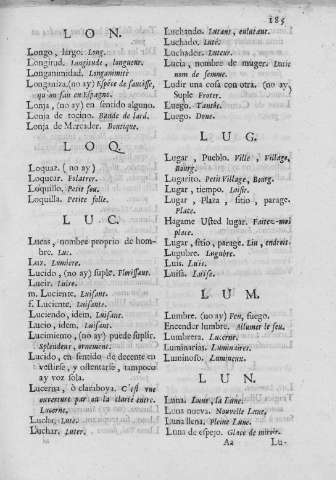 185
L O N.
Longo, largo. Long.
Longitud. Longitude, longueur.
Longanimidad. Longanimité
Longaniza. (no ay) Espéce de saucisse,
qu'on fait en Espagne.
Lonja, (no ay) en sentido alguno.
Lonja de tocino. Bande de lard.
Lonja de Mercader. Boutique.
L O Q.
Loquaz. (no ay)
Loquear. Folatrer.
Loquillo. Petit fou.
Loquilla. Petite folle.
L U C.
Lucas, nombre proprio de hom-
bre. Luc.
Luz. Lumiere.
Lucido, (no ay) suple. Florissant.
Lucir. Luire.
m. Luciente. Luisant.
f. Luciente. Luisante.
Luciendo, idem. Luisant.
Lucio, idem. Luisant.
Lucimiento, (no ay) puede suplir.
Splendeur, ornement.
Lucido, en sentido de decente en
vestirse, y ostentarse, tampoco
ay voz sola.
Lucerna, ò claraboya. C'est une
ouverture par où la clarté entre.
Lucerne.
Lucha. Lute.
Luchar. Luter.
Luchando. Lutant, enlutant.
Luchado. Luté.
Luchador. Luteur.
Lucia, nombre de muger. Lucie
nom de femme.
Ludir una cosa con otra. (no ay)
Suple Froter.
Luego. Tantôt.
Luego. Donc.
L U G.
Lugar, Pueblo. Ville, Village,
Bourg.
Lugarito. Petit Village, Bourg.
Lugar, tiempo. Loisir.
Lugar, Plaza, sitio, parage.
Place.
Hagame Usted lugar. Faites-moi
place.
Lugar, sitio, parage. Liu, endroit.
Lugubre. Lugubre.
Luis. Luis.
Luisa. Luise.
L U M.
Lumbre. (no ay) Feu, fuego.
Encender lumbre. Allumer le feu.
Lumbrera. Lucerne.
Luminarias. Luminaires.
Luminoso. Lumineux.
L U N.
Luna. Lune, la Lune.
Luna nueva. Nouvelle Lune,
Luna llena. Pleine Lune.
Luna de espejo. Glace de miroir.
Aa Lu-